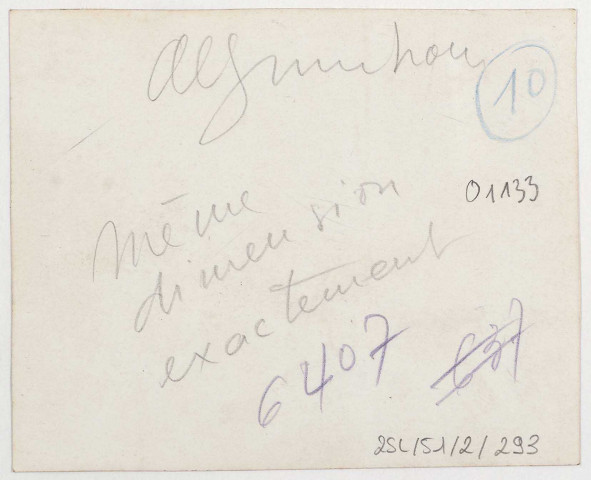 10
01133
même
dimension
exactement
6407
637
25L/51/2/293